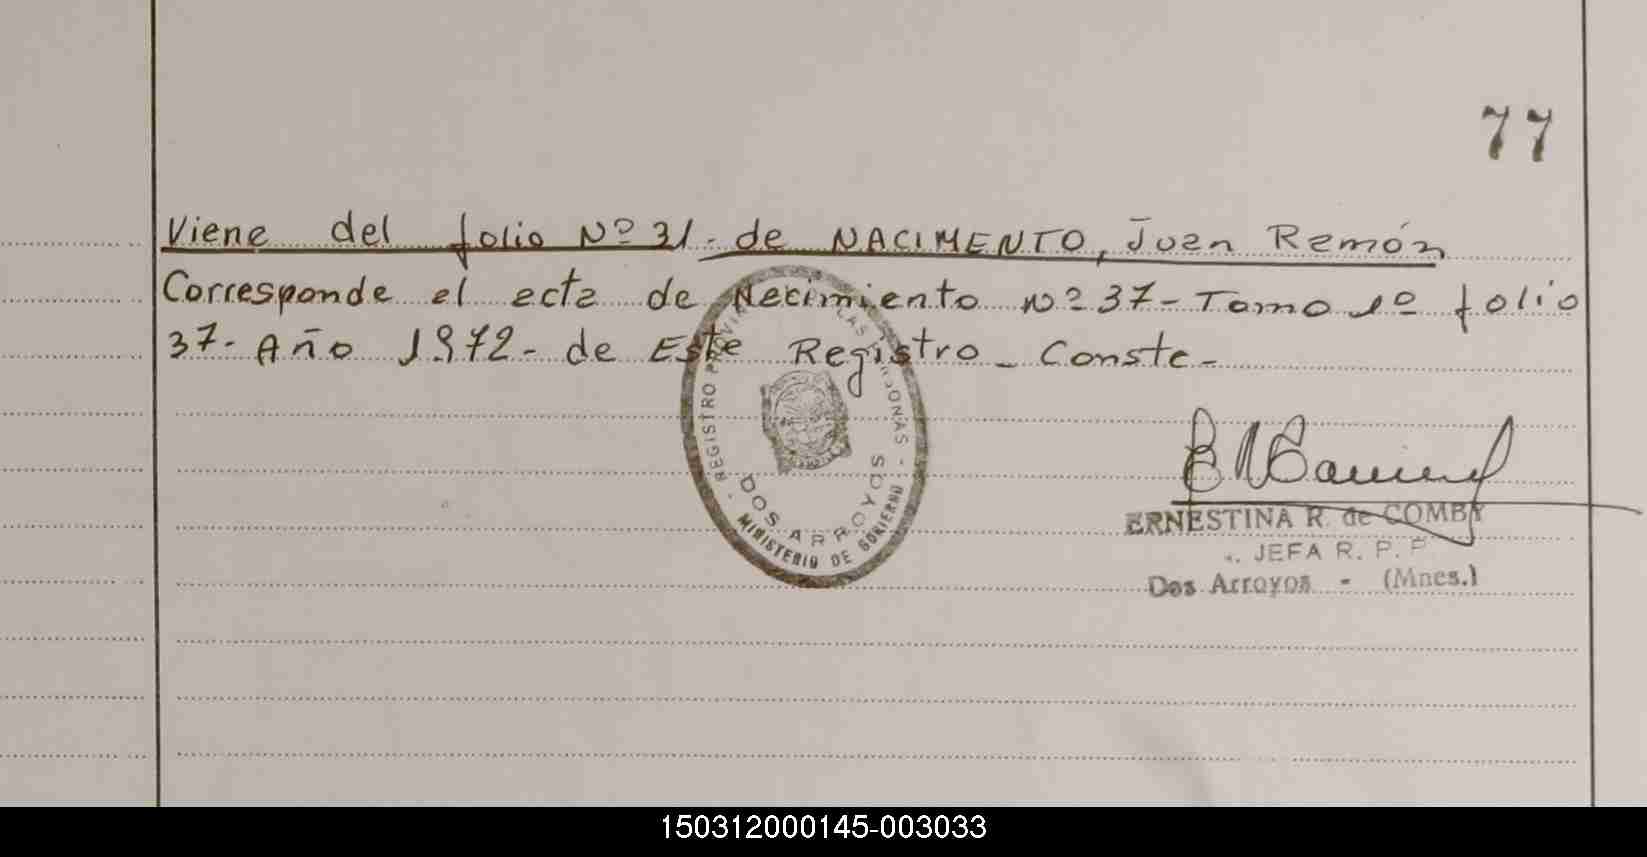 77
Viene del folio Nº 31 - de NACIMENTO, Juan Ramón
Corresponde al acta de Nacimiento Nº 37 - Tomo 1º folio
37 - Año 1972 - de Este Registro - Conste -
REGISTRO
DOS ARROYOS
MINISTERIO DE GOBIERNO
ERNESTINA R. de COMBY
JEFA R. P. P
Dos Arroyos - (Mnes.)
150312000145-003033